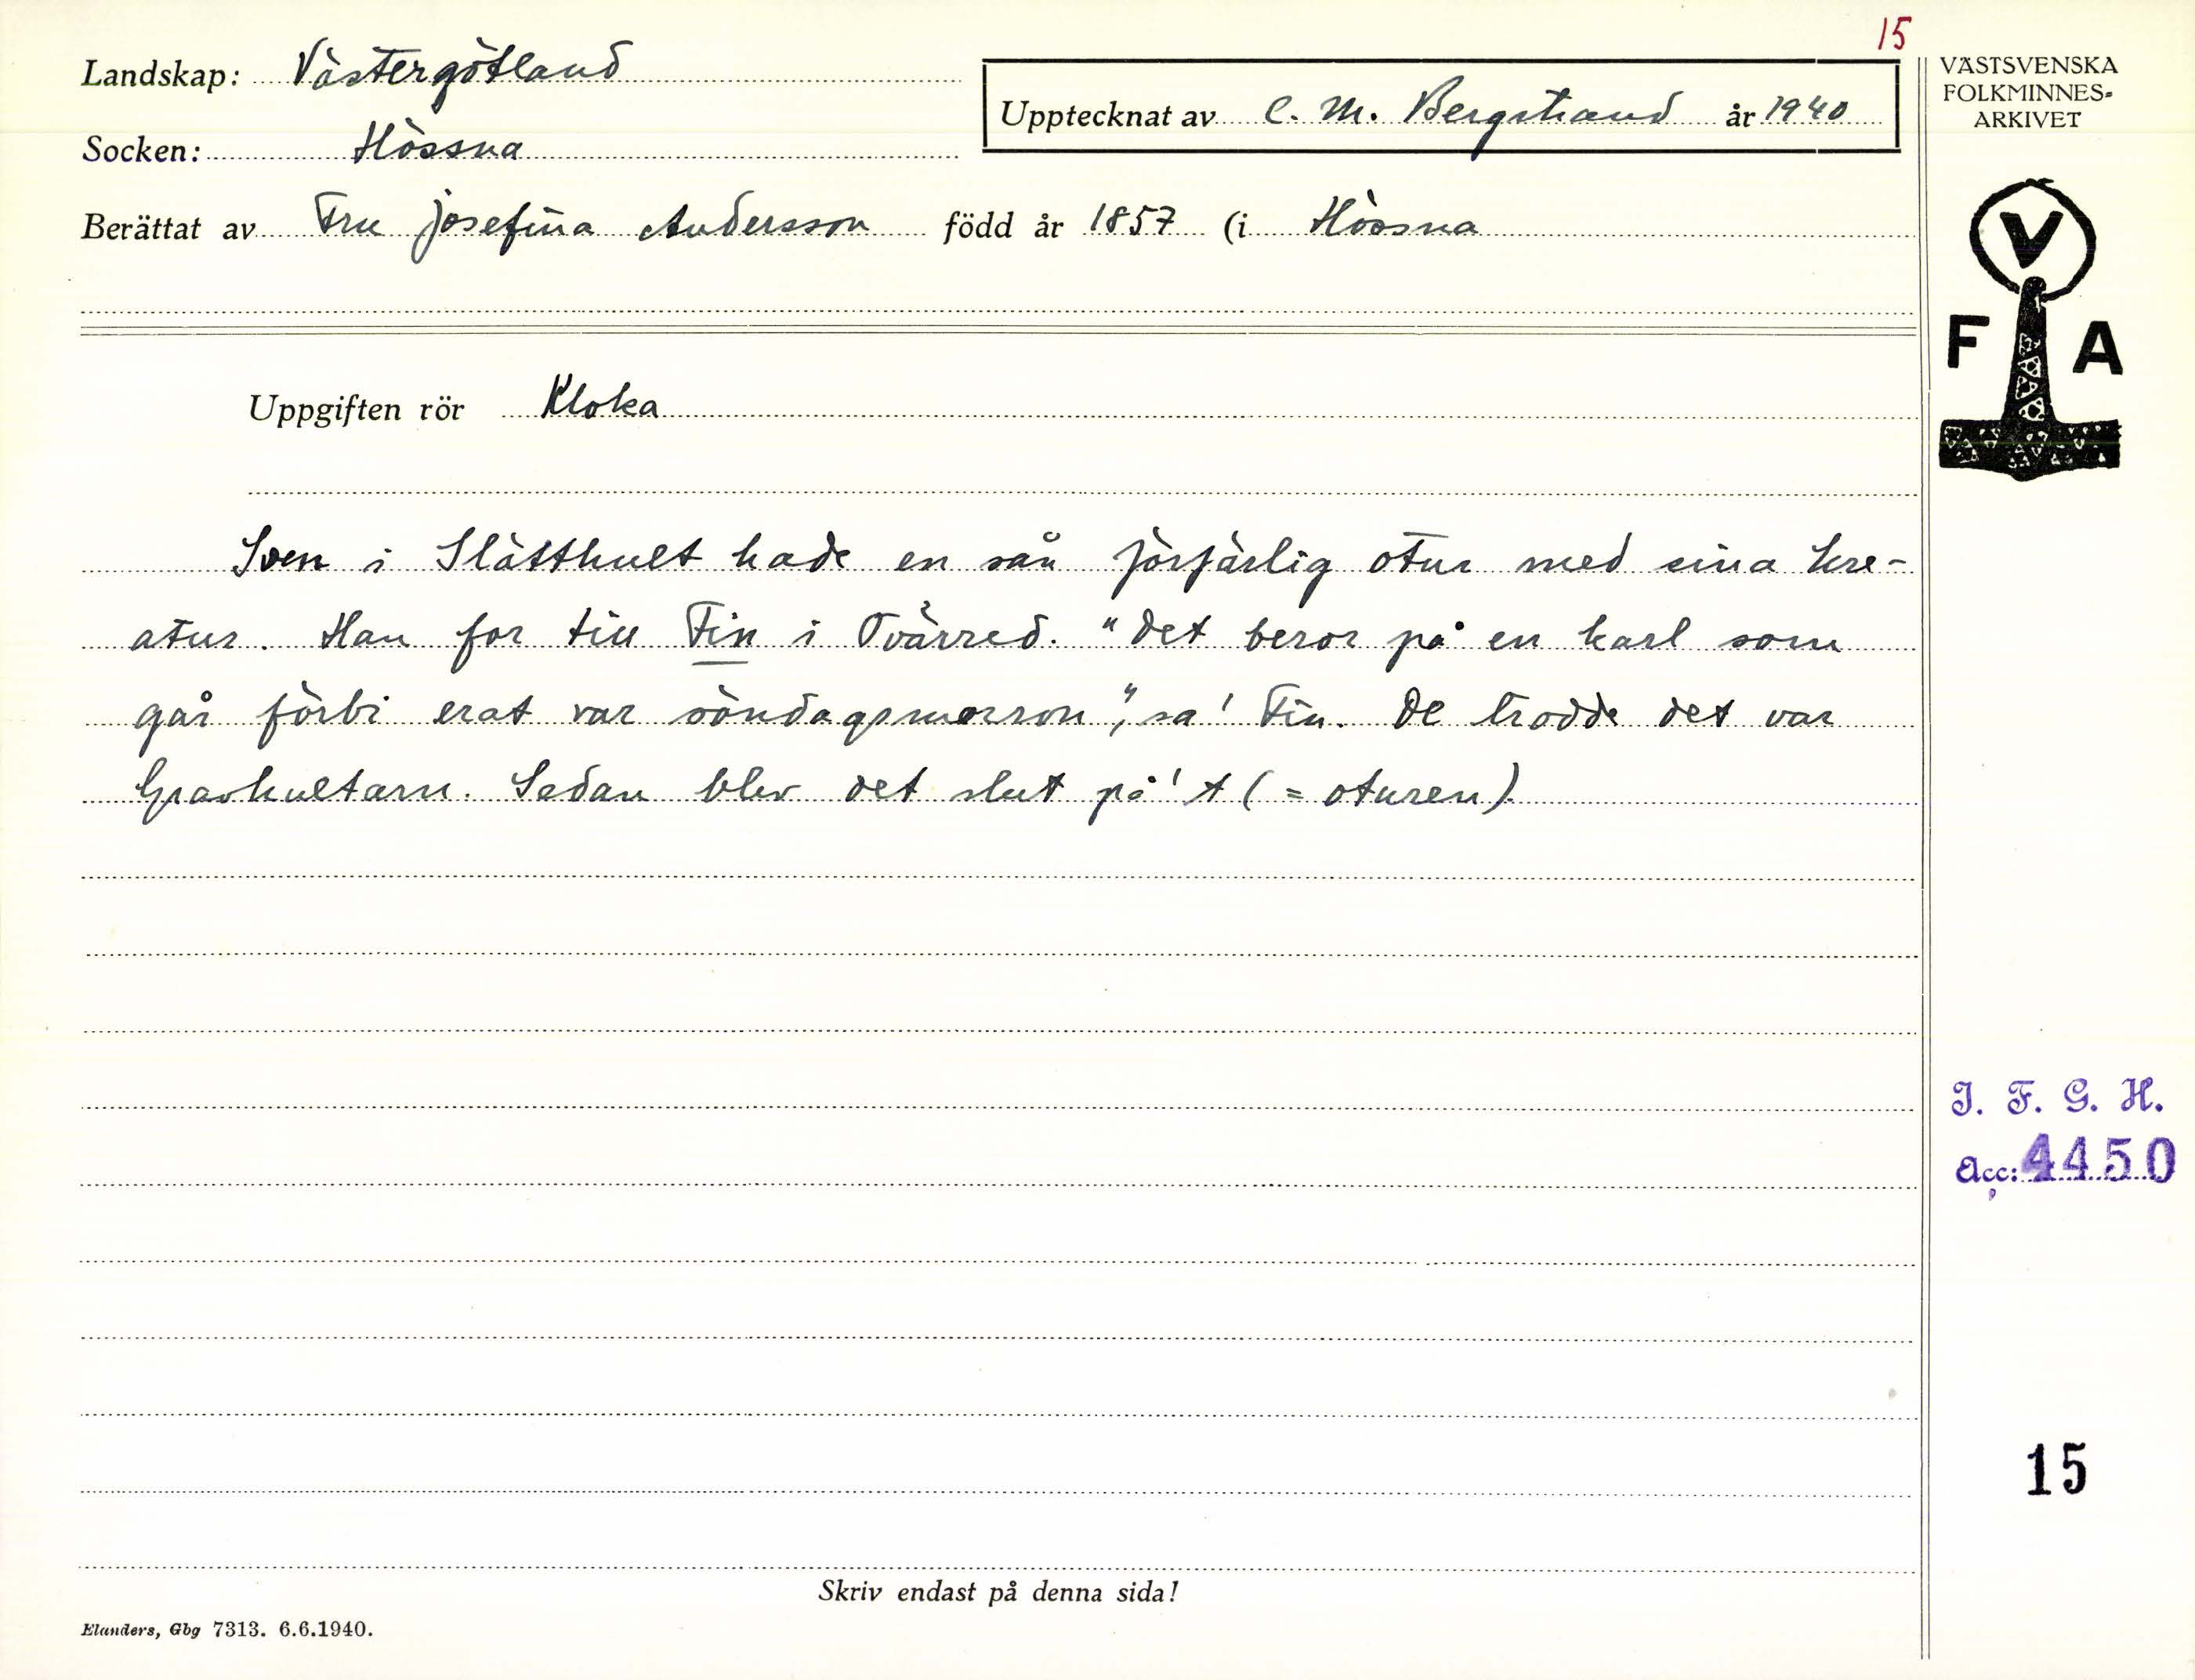 15
Landskap: Västergötland
Upptecknat av C. M. Bergstrand år 1940
Socken: Hössna
Berättat av Fru Josefina Andersson född år 1857 (i Hössna
VÄSTSVENSKA
FOLKMINNES-
ARKIVET
V
F A
Uppgiften rör Kloka
Sven i Slätthult hade en sån förfärlig otur med sina kre-
atur. Han for till Fin i Tvärred. "Det beror på en karl som
går förbi erat var söndagsmorron", sa' Fin. De trodde det var
Gravhultarn. Sedan blev det slut på't (= oturen).
I. F. G. H.
Acc: 4450
15
Skriv endast på denna sida!
Elanders, Gbg 7313. 6.6.1940.